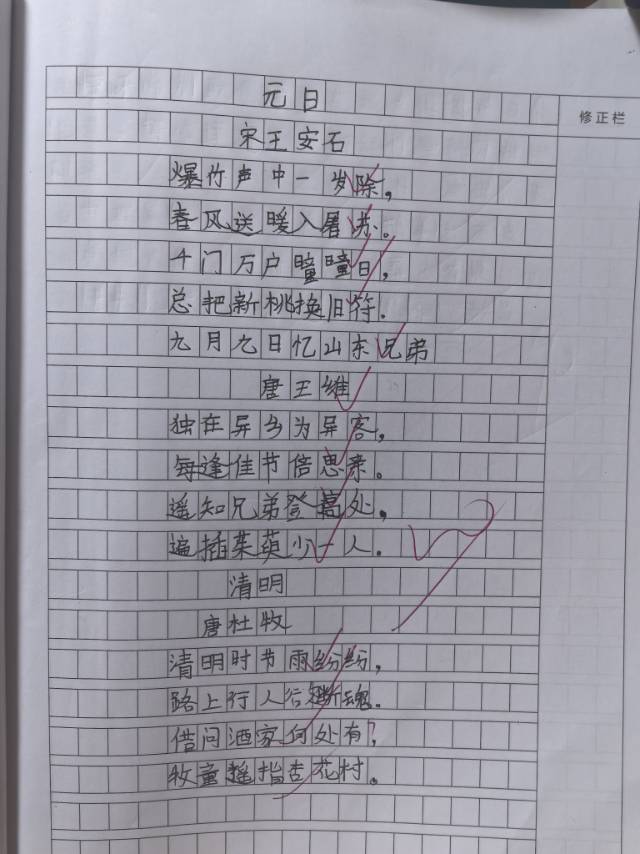 元日
修正栏
宋王安石
爆竹声中一岁除，
春风送暖入暑苏。
千门万户曈曈日，
总把新桃换旧符.
九月九日忆山东兄弟
唐王维
独在异乡为异客，
每逢佳节倍思亲。
遥知兄弟登高处，
遍插茱萸少一人.
清明
唐杜牧
清明时节雨纷纷，
路上行人欲断魂.
借问酒家何处有？
牧童摇指杏花村。